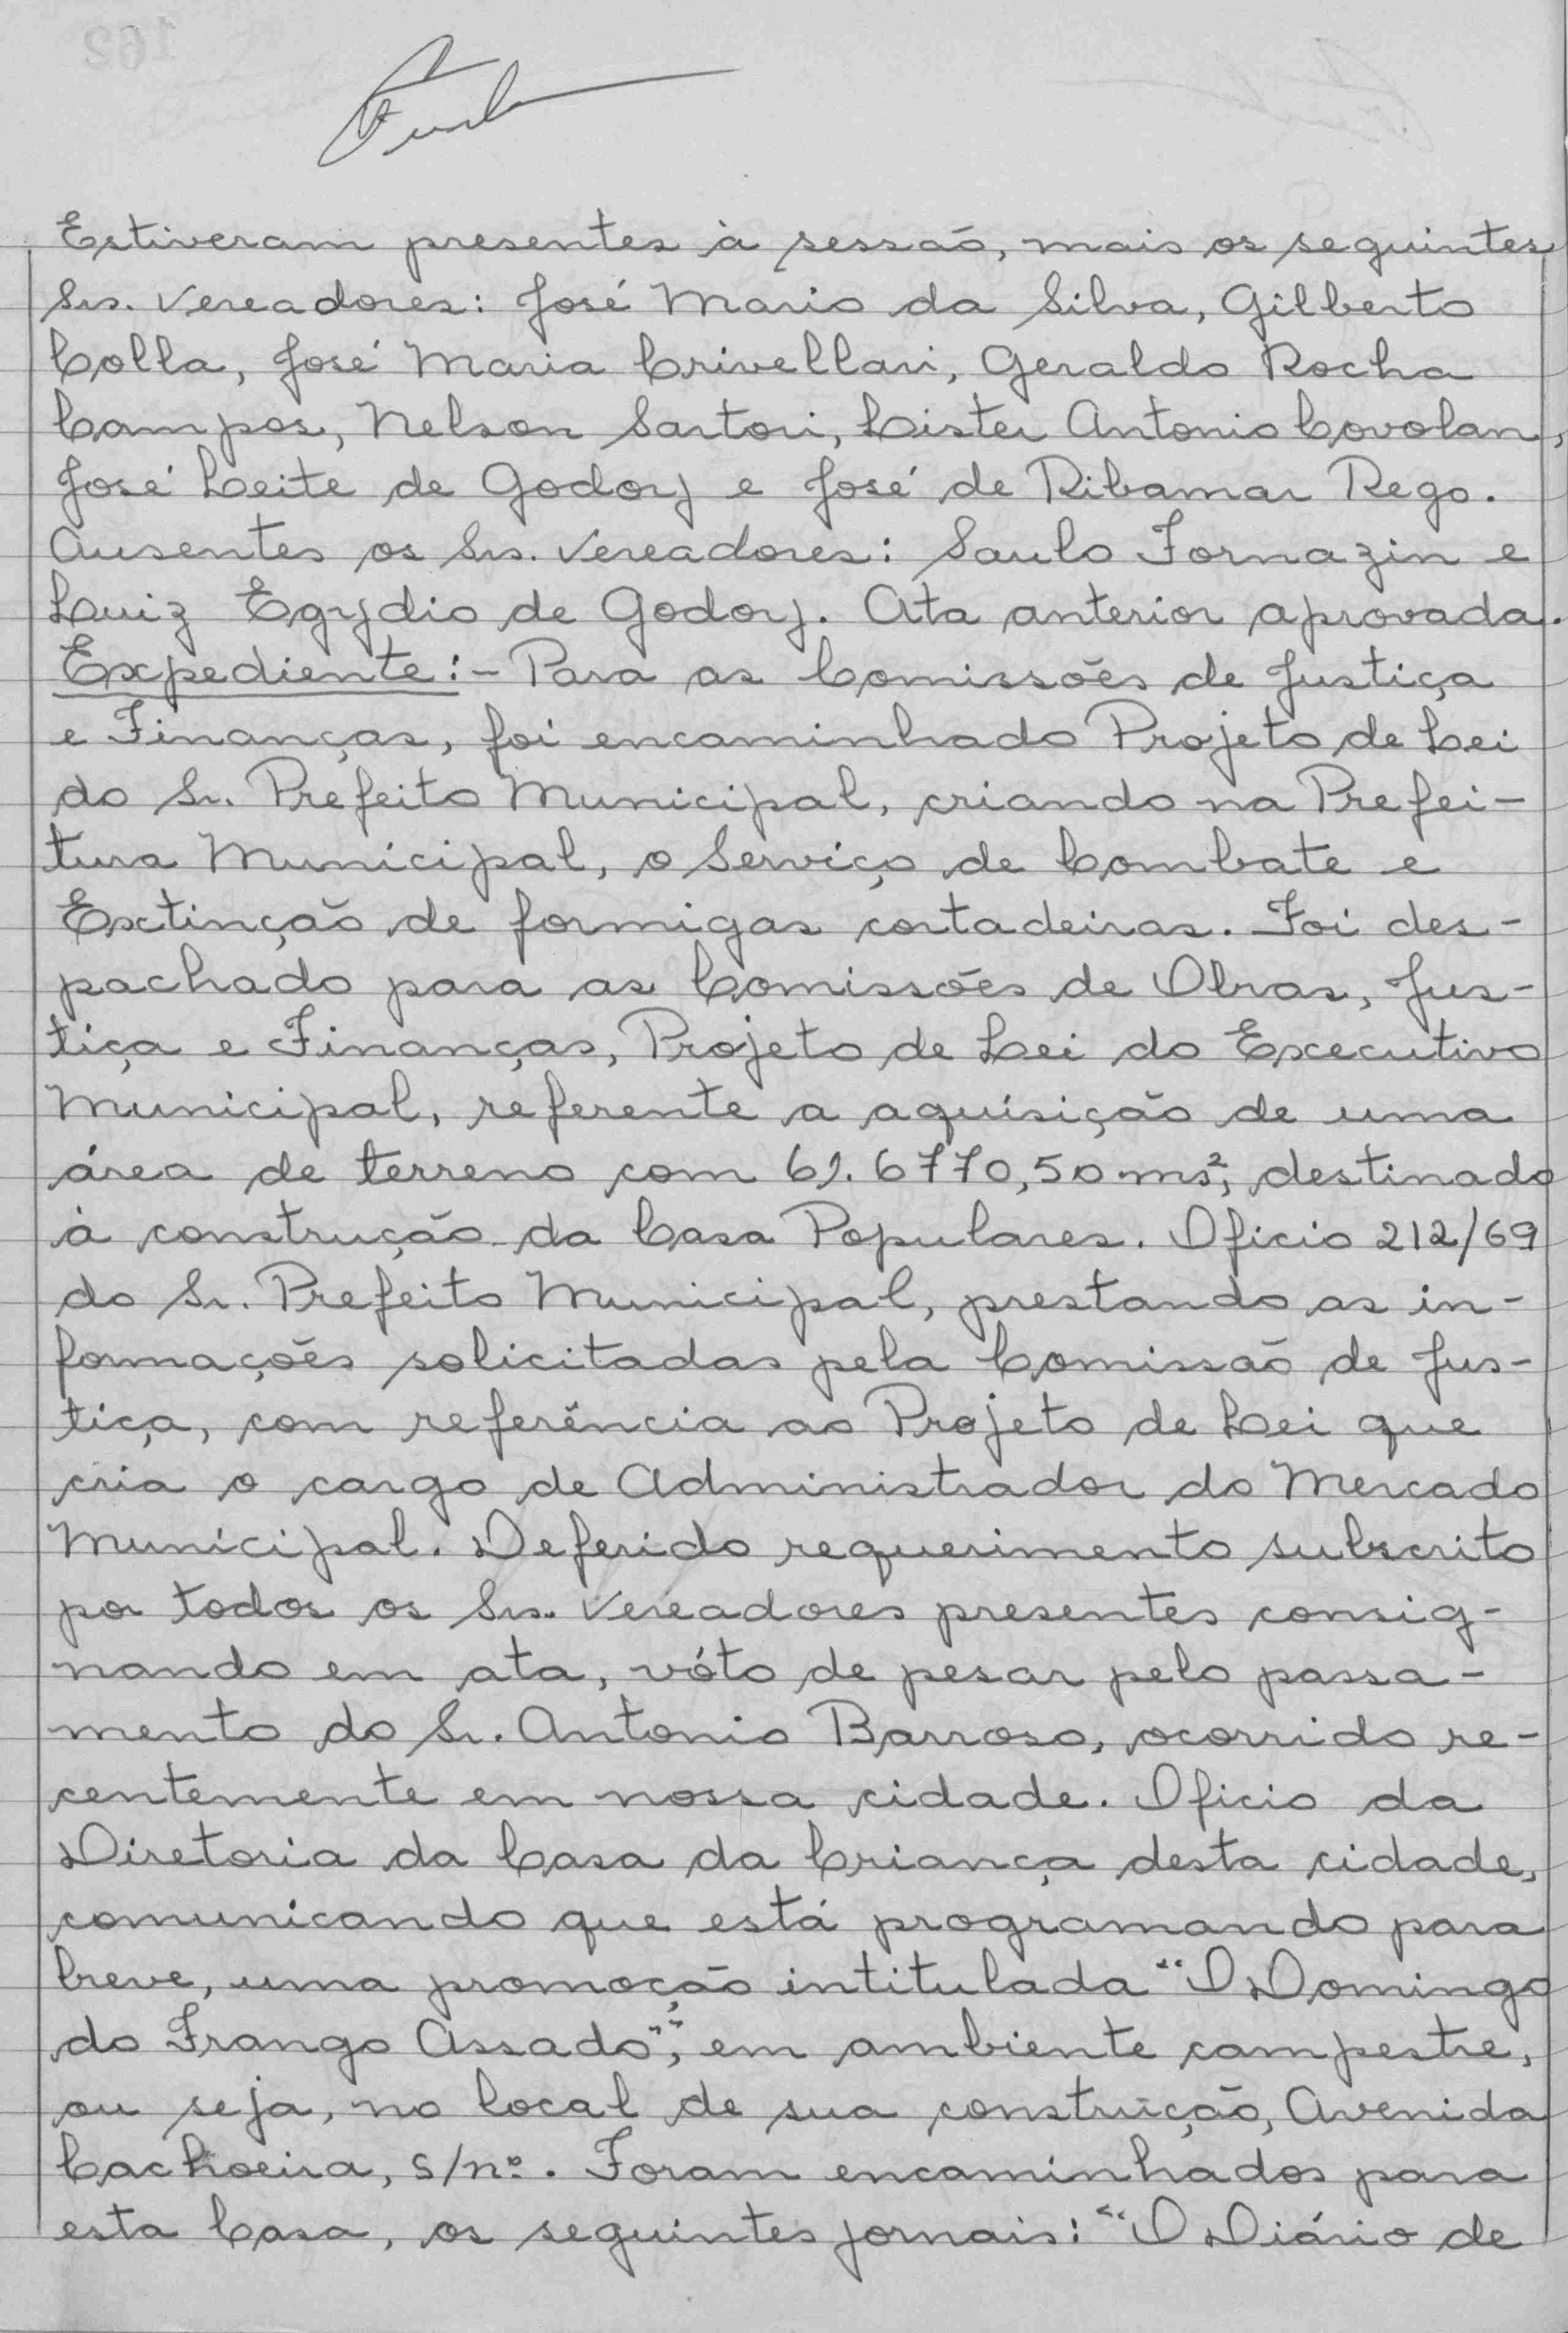 Estiveram presentes à sessão, mais os seguintes
Srs. Vereadores: José Mario da Silva, Gilberto
Colla, José Maria Crivellari, Geraldo Rocha
Campos, Nelson Sartori, Lister Antonio Covolan,
José Leite de Godoy e José de Ribamar Rego.
Ausentes os Srs. Vereadores: Saulo Fornazin e
Luiz Egydio de Godoy. Ata anterior aprovada.
Expediente:- Para as Comissões de Justiça
e Finanças, foi encaminhado Projeto de Lei
do Sr. Prefeito Municipal, criando na Prefei-
tura Municipal, o Serviço de Combate e
Extinção de formigas cortadeiras. Foi des-
pachado para as Comissões de Obras, Jus-
tiça e Finanças, Projeto de Lei do Executivo
Municipal, referente a aquisição de uma
área de terreno com 61.6770,50 ms², destinado
à construção da Casa Populares. Oficio 212/69
do Sr. Prefeito Municipal, prestando as in-
formações solicitadas pela Comissão de Jus-
tiça, com referência ao Projeto de Lei que
cria o cargo de Administrador do Mercado
Municipal. Deferido requerimento subscrito
por todos os Srs. Vereadores presentes consig-
nando em ata, vóto de pesar pelo passa-
mento do Sr. Antonio Barroso, ocorrido re-
centemente em nossa cidade. Oficio da
Diretoria da Casa da Criança desta cidade,
comunicando que está programando para
breve, uma promoção intitulada "O Domingo
do Frango Assado", em ambiente campestre,
ou seja, no local de sua construição, Avenida
Cachoeira, s/nº. Foram encaminhados para
esta Casa, os seguintes jornais: "O Diário de